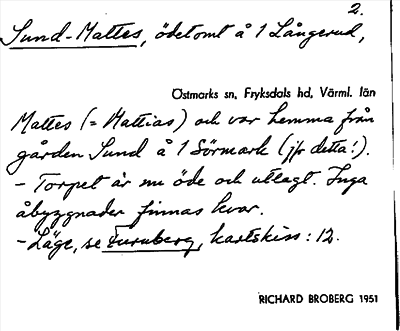 2.
Sund-Mattes, ödetomt å 1 Långerud,
Östmarks sn, Fryksdals hd, Värml. län
Mattes (= Mattias) och var hemma från
gården Sund å 1 Sörmark (jfr detta!).
- Torpet är nu öde och utlagt. Inga
åbyggnader finnas kvar.
- Läge, se Furuberg, kartskiss: 12.
RICHARD BROBERG 1951